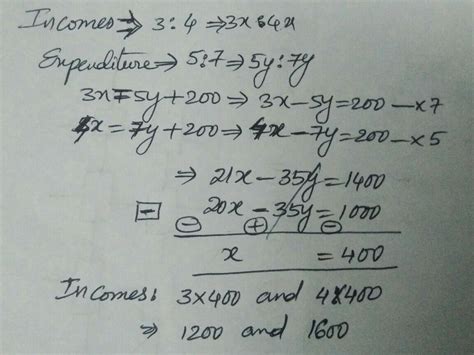 Incomes ⇒ 3:4 ⇒ 3x : 4x
Expenditure ⇒ 5:7 ⇒ 5y : 7y
3x = 5y + 200 ⇒ 3x - 5y = 200 - x7
4x = 7y + 200 ⇒ 4x - 7y = 200 - x5
⇒ 21x - 35y = 1400
- 20x - 35y = 1000
- + -
x = 400
Incomes: 3x400 and 4x400
⇒ 1200 and 1600